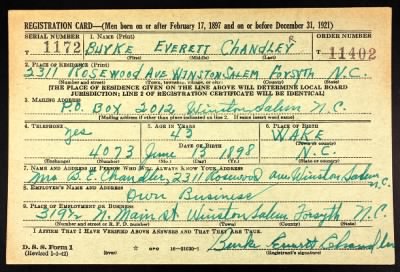 REGISTRATION CARD—(Men born on or after February 17, 1897 and on or before December 31, 1921)
SERIAL NUMBER 1. NAME (Print) ORDER NUMBER
1172 BURKE EVERETT CHANDLER 11402
(First) (Middle) (Last)
2. PLACE OF RESIDENCE (Print)
2311 ROSEWOOD AVE WINSTON SALEM FORSYTH N.C.
(Number and street) (Town, township, village, or city) (County) (State)
[THE PLACE OF RESIDENCE GIVEN ON THE LINE ABOVE WILL DETERMINE LOCAL BOARD
JURISDICTION; LINE 2 OF REGISTRATION CERTIFICATE WILL BE IDENTICAL]
3. MAILING ADDRESS
P.O. BOX 2012 Winston Salem N.C.
(Mailing address if other than place indicated on line 2. If same insert word same)
4. TELEPHONE 5. AGE IN YEARS 6. PLACE OF BIRTH
yes 43 WAKE
DATE OF BIRTH
4073 June 13 1898 N.C.
(Exchange) (Number) (Mo.) (Day) (Yr.) (State or country)
7. NAME AND ADDRESS OF PERSON WHO WILL ALWAYS KNOW YOUR ADDRESS
Mrs B. E. Chandler, 2311 Rosewood ave Winston Salem N.C.
8. EMPLOYER'S NAME AND ADDRESS
Own Business
9. PLACE OF EMPLOYMENT OR BUSINESS
319½ N. Main St Winston Salem Forsyth N.C.
(Number and street or R. F. D. number) (Town) (County) (State)
I AFFIRM THAT I HAVE VERIFIED ABOVE ANSWERS AND THAT THEY ARE TRUE.
D. S. S. Form 1 Burke Everett Chandler
(Revised 1-1-42) (over) 16—21630-1 (Registrant's signature)